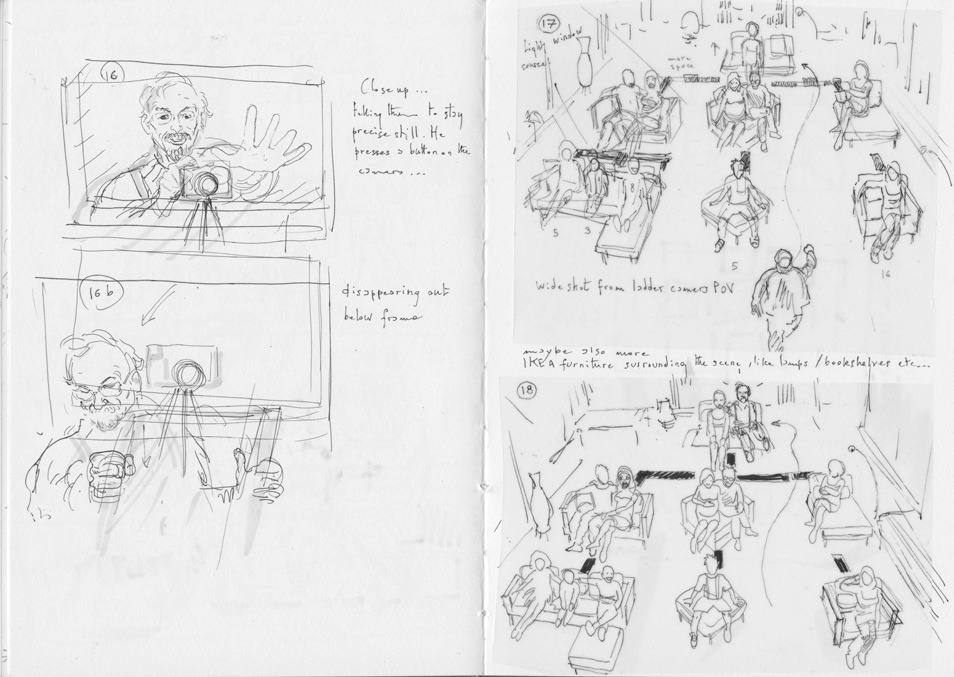 16
Close up ...
talking them to stay
precise still. He
presses a button on the
camera ...
16 b
disappearing out
below frame
17
light window
more
space
5
3
8
5
16
wide shot from ladder camera POV
maybe also more
IKEA furniture surrounding the scene, like lamps / bookshelves etc...
18